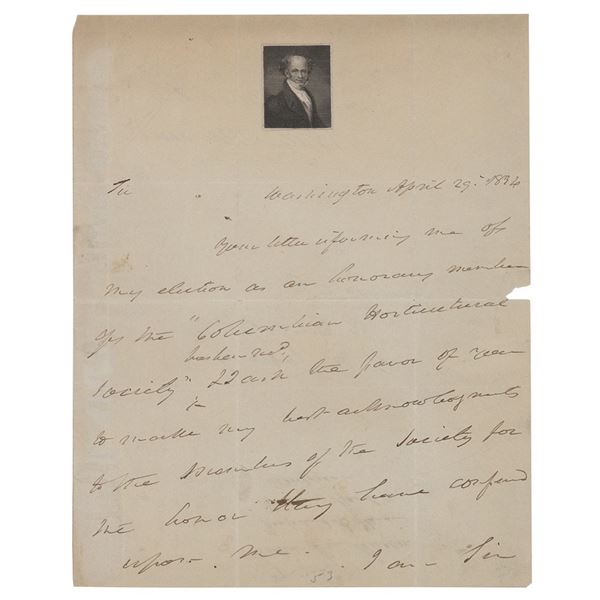 Sir Washington April 29. 1834
Your letter informing me of
my election as an honorary member
of the "Columbian Horticultural
has been recd,
Society" I ask the favor of you
to make my best acknowlegments
to the Members of the Society for
the honor they have conferred
upon me. I am Sir
53